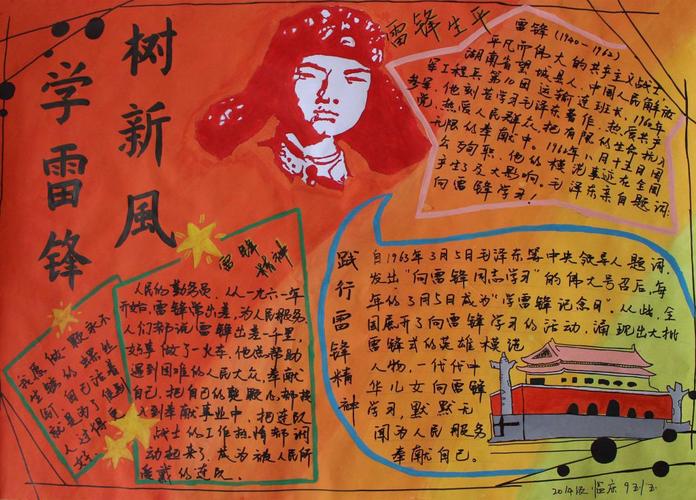 学雷锋
树新風
雷锋生平
雷锋(1940-1962)
平凡而伟大的共产主义战士
湖南省望城县人，中国人民解放
军工程兵第10团运输连班长，1960年
参军。他刻苦学习毛泽东著作，热爱共产
党，热爱人民群众，把有限的生命投入
无限的奉献中。1962年八月十五日因
公殉职，他的模范事迹在全国
产生了反大影响。毛泽东亲自题词：
向雷锋学习！
雷锋精神
人民的勤务员，从一九六一年
开始，雷锋常出差，为人民服务，
人们都说：雷锋出差一千里，
好事做了一火车。他总帮助
遇到困难的人民大众，奉献
自己，把自己的
到奉献事业中，把连队
战士的工作热情都调
动起来了，成为被人民所
爱戴的连队。
我愿做一颗永不
生锈的螺丝
钉，自己活着
就是为了使别
人过得更
好
践行雷锋精神
自1963年3月5日毛泽东等中央领导人题词，
发出“向雷锋同志学习”的伟大号召后，每
年的3月5日成为“学雷锋记念日”，从此，全
国展开了向雷锋学习的活动，涌现出大批
雷锋式的英雄模范
人物，一代代中
华儿女向雷锋
学习，默默无
闻为人民服务
奉献自己。